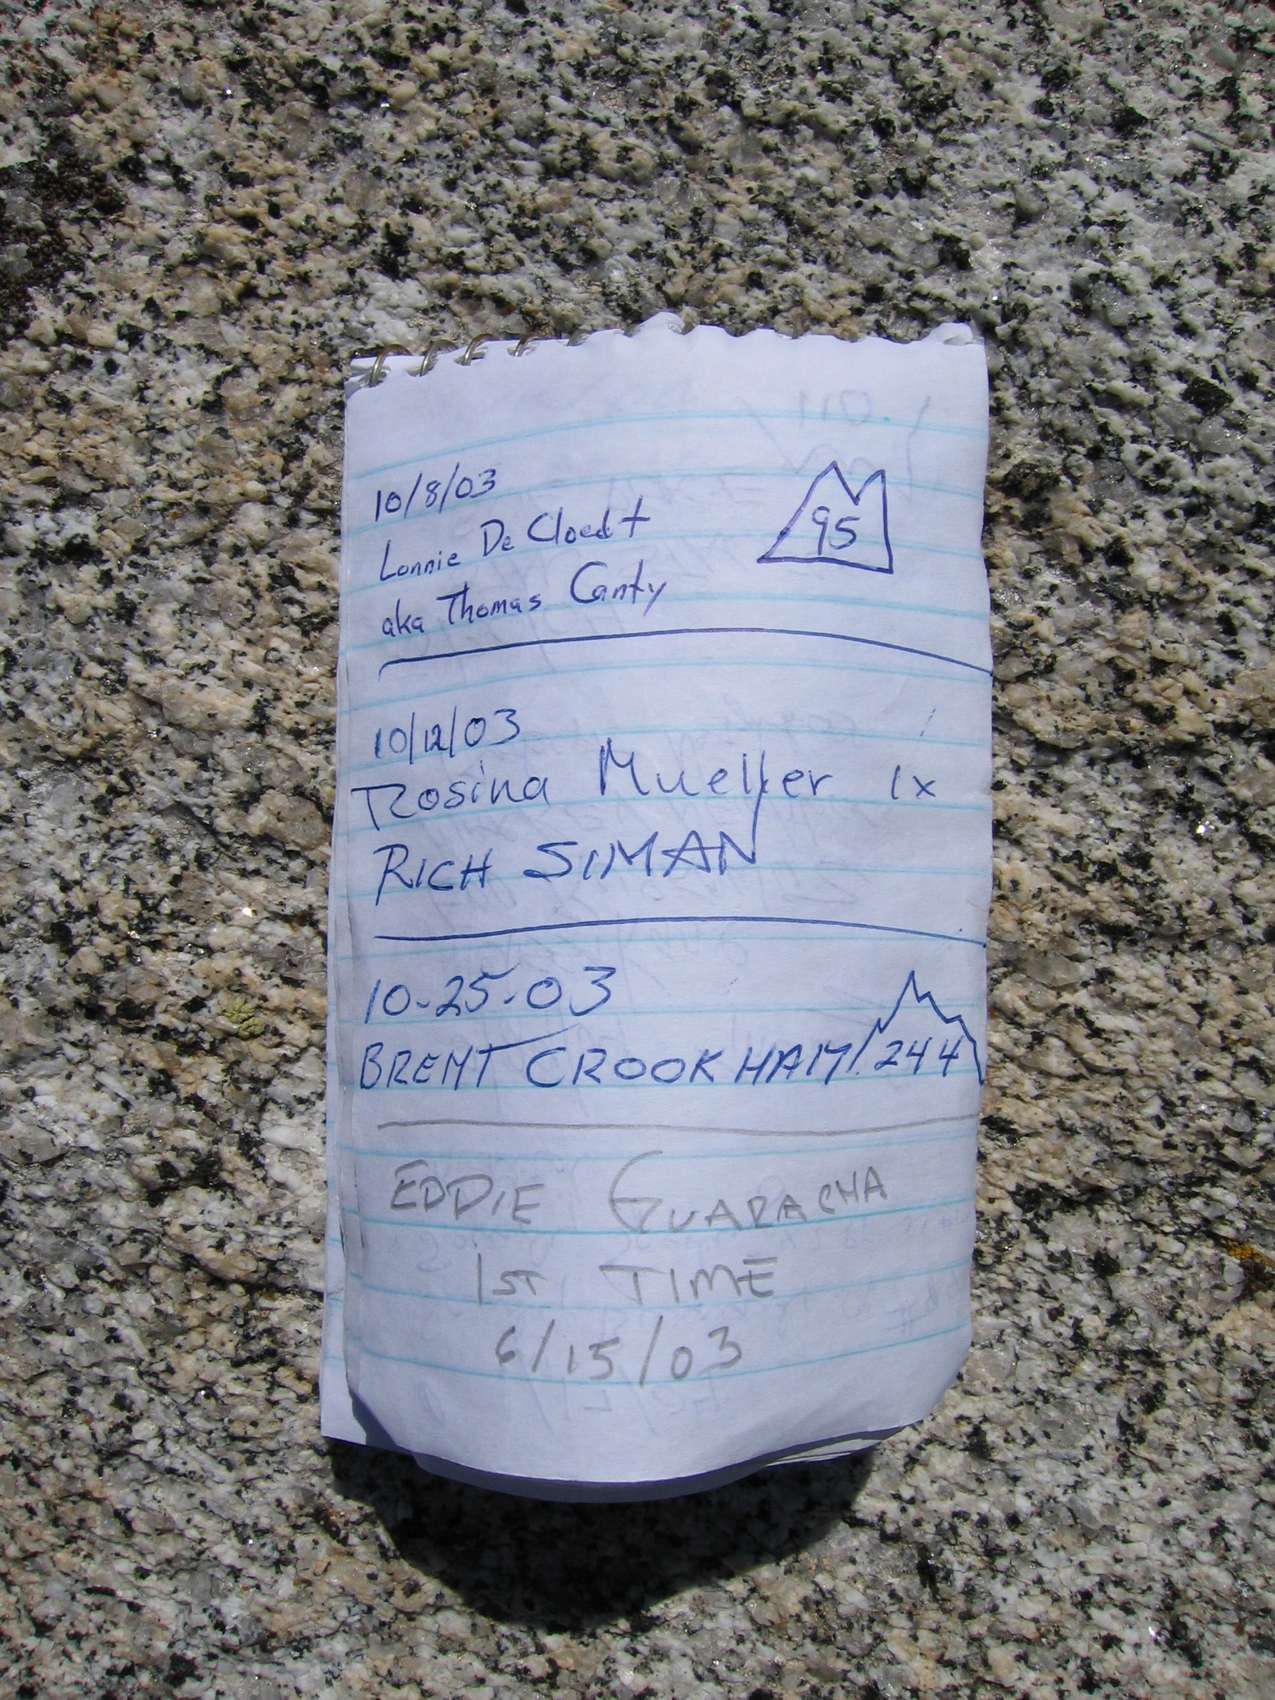 10/8/03
95
Lonnie De Cloedt
aka Thomas Canty
10/12/03
Rosina Mueller 1x
RICH SIMAN
10-25-03
BRENT CROOKHAM 244
EDDIE GUARACHA
1ST TIME
6/15/03